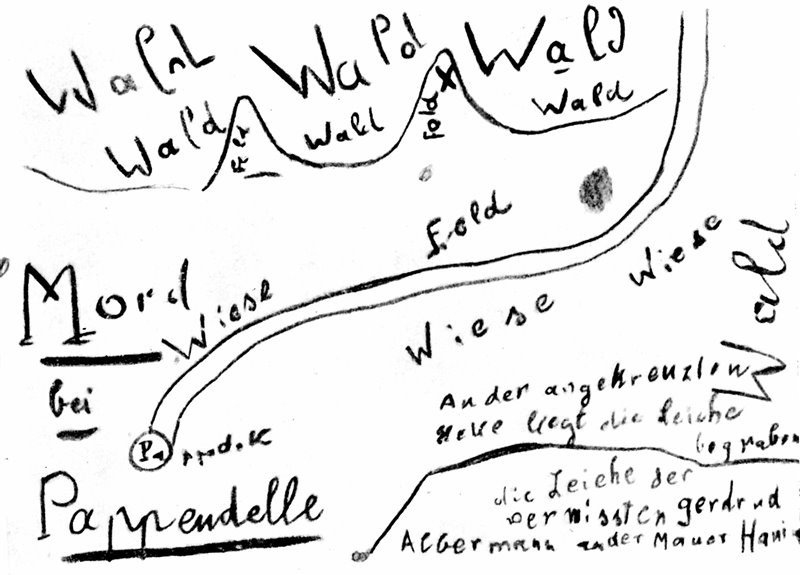 Wald Wald Wald
Wald Wald Wald
Feld
Wiese Wiese Wiese Wald
Mord
bei
Pappendelle
An der angekreuzten
Stelle liegt die Leiche
begraben
die Leiche der
vermissten gerdrud
Albermann an der Mauer Hani